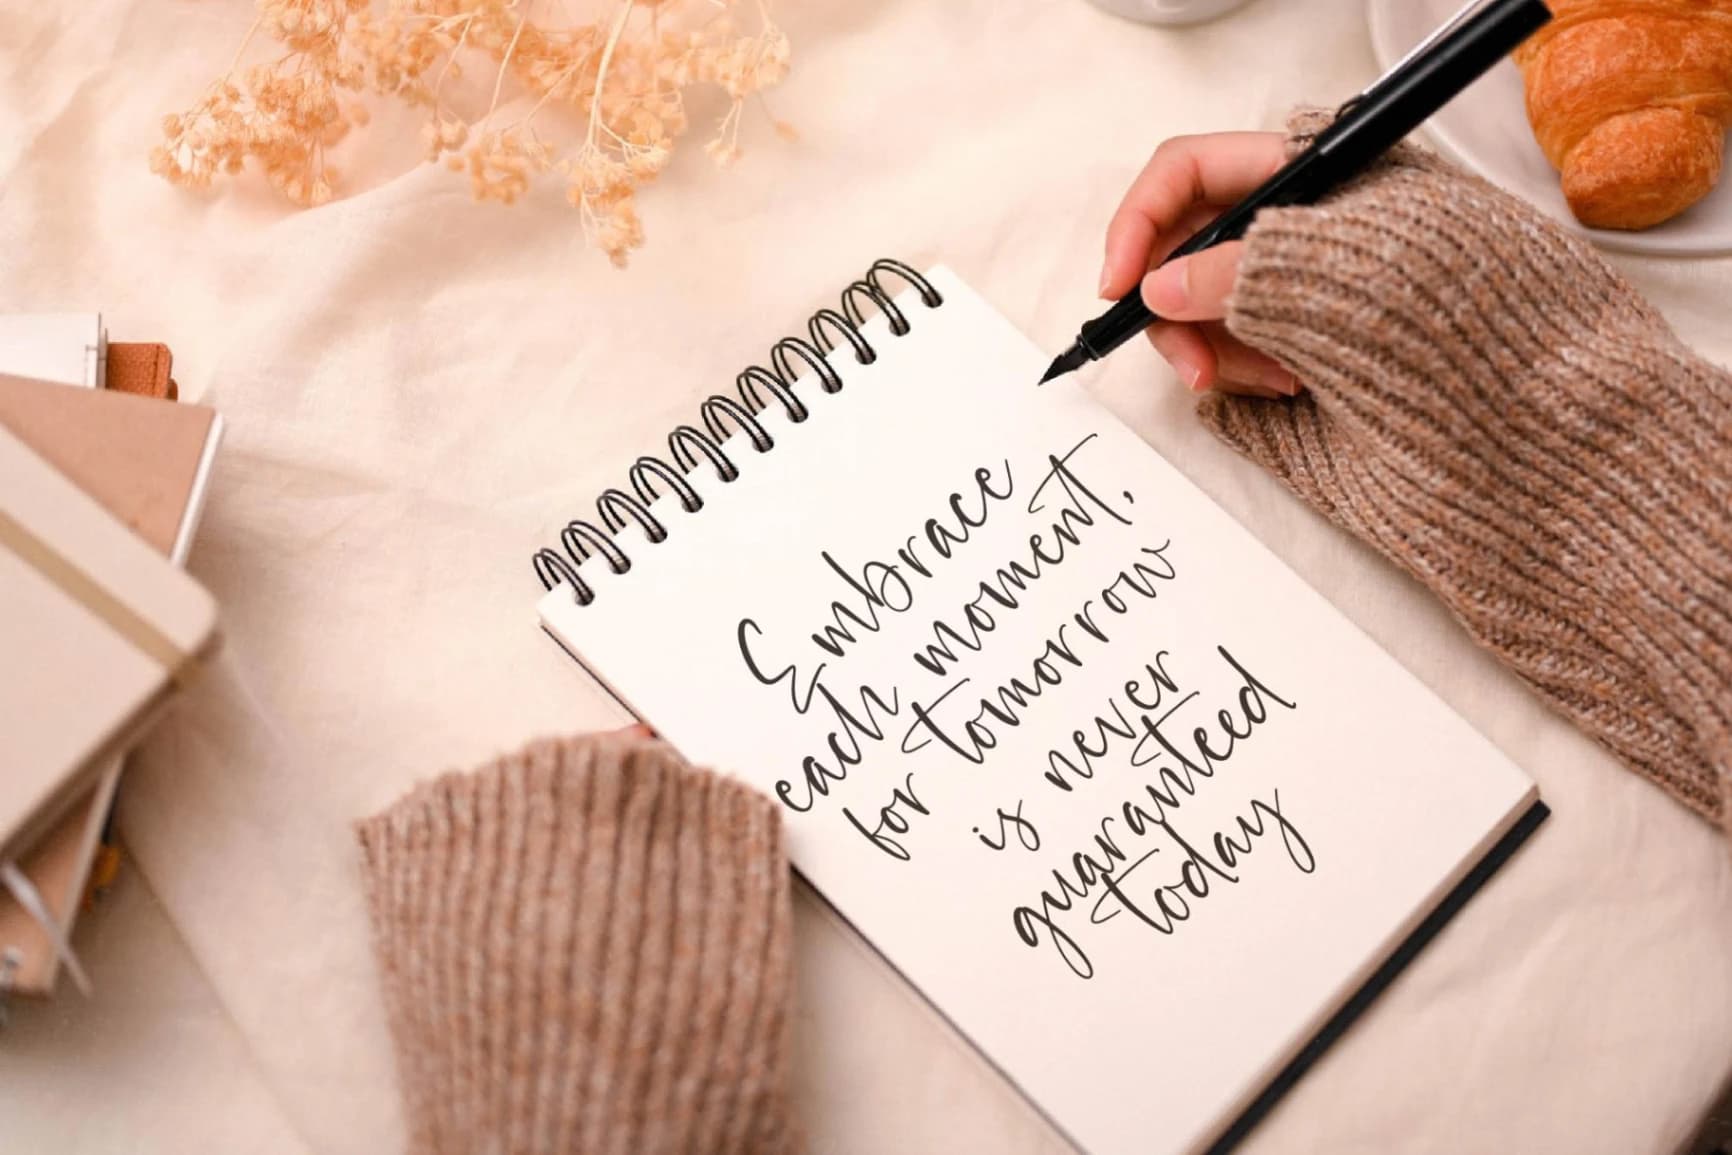 Embrace
each moment,
for tomorrow
is never
guaranteed
today